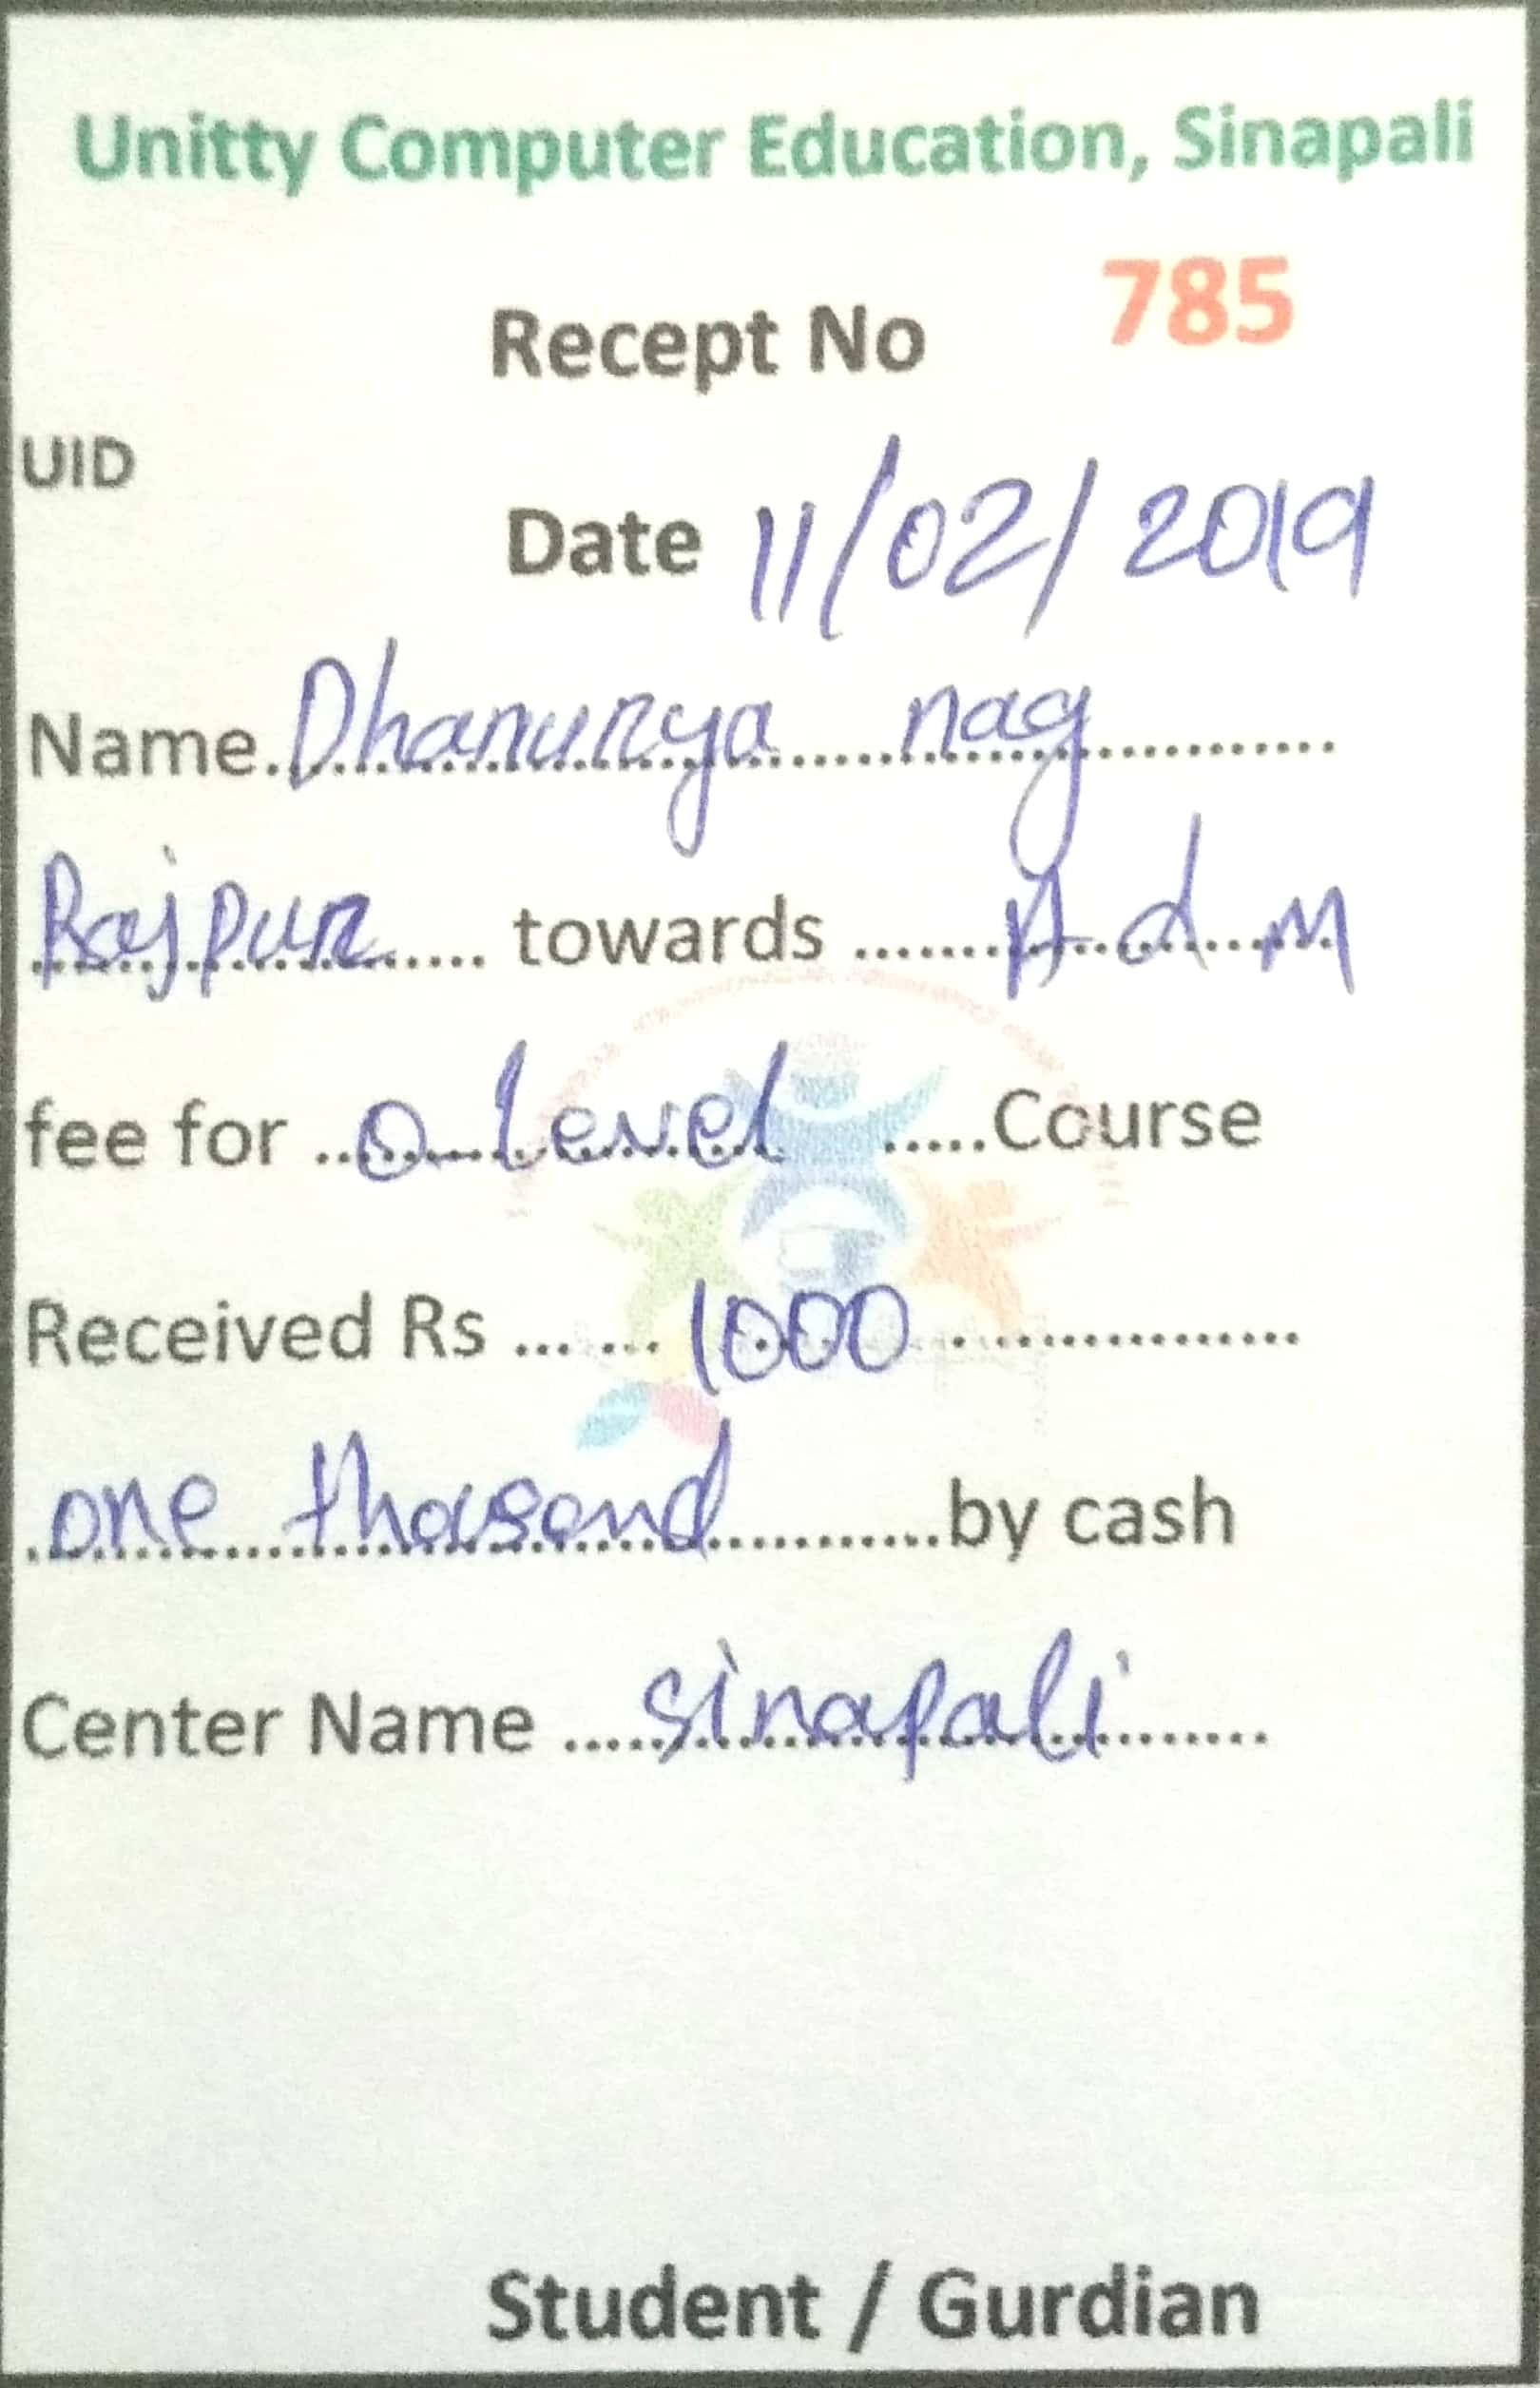 Unitty Computer Education, Sinapali
Recept No 785
UID
Date 11/02/2019
Name Dhanurya nag
Rajpur towards A d M
fee for O Level Course
Received Rs 1000
one thasand by cash
Center Name sinapali
Student / Gurdian